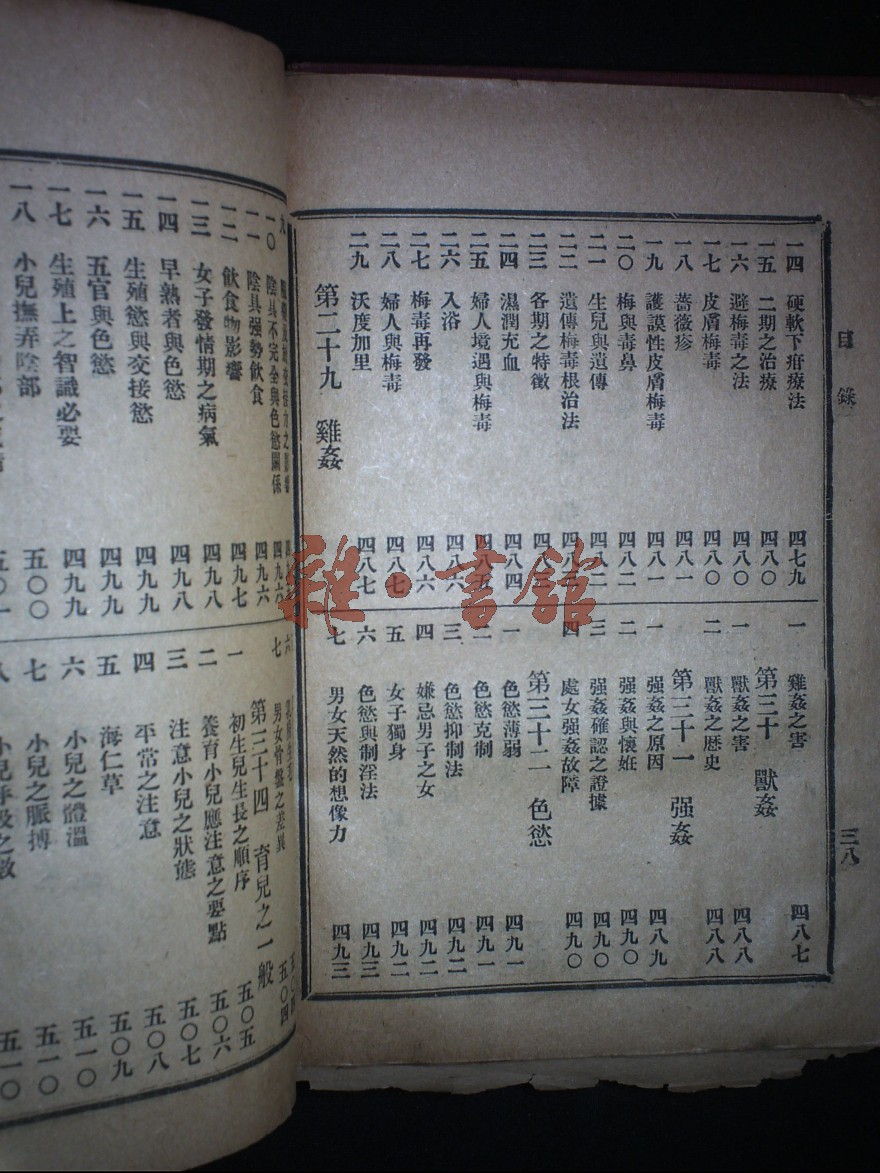 目錄
三八
一四 硬軟下疳療法 四七九
一五 二期之治療 四八〇
一六 避梅毒之法 四八〇
一七 皮膚梅毒 四八〇
一八 薔薇疹 四八一
一九 護謨性皮膚梅毒 四八一
二〇 梅與毒鼻 四八二
二一 生兒與遺傳 四八二
二二 遺傳梅毒根治法 四八
二三 各期之特徵 四八
二四 濕潤充血 四八四
二五 婦人境遇與梅毒 四八五
二六 入浴 四八六
二七 梅毒再發 四八六
二八 婦人與梅毒 四八七
二九 沃度加里 四八七
第二十九 雞姦
一 雞姦之害 四八七
第三十 獸姦
一 獸姦之害 四八八
二 獸姦之歷史 四八八
第三十一 强姦
一 强姦之原因 四八九
二 强姦與懷姙 四九〇
三 强姦確認之證據 四九〇
四 處女强姦故障 四九〇
第三十二 色慾
一 色慾薄弱 四九一
二 色慾克制 四九一
三 色慾抑制法 四九二
四 嫌忌男子之女 四九二
五 女子獨身 四九二
六 色慾與制淫法 四九三
七 男女天然的想像力 四九三
九
一〇 陰具不完全與色慾關係 四九六
一一 陰具强勢飲食 四九六
一二 飲食物影響 四九七
一三 女子發情期之病氣 四九八
一四 早熟者與色慾 四九八
一五 生殖慾與交接慾 四九九
一六 五官與色慾 四九九
一七 生殖上之智識必要 五〇〇
一八 小兒撫弄陰部 五〇一
六
七 男女骨盤之差異 五〇四
第三十四 育兒之一般
一 初生兒生長之順序 五〇五
二 養育小兒應注意之要點 五〇六
三 注意小兒之狀態 五〇七
四 平常之注意 五〇八
五 海仁草 五〇九
六 小兒之體溫 五一〇
七 小兒之脈搏 五一〇
八 小兒呼吸之數 五一〇
雜·書館